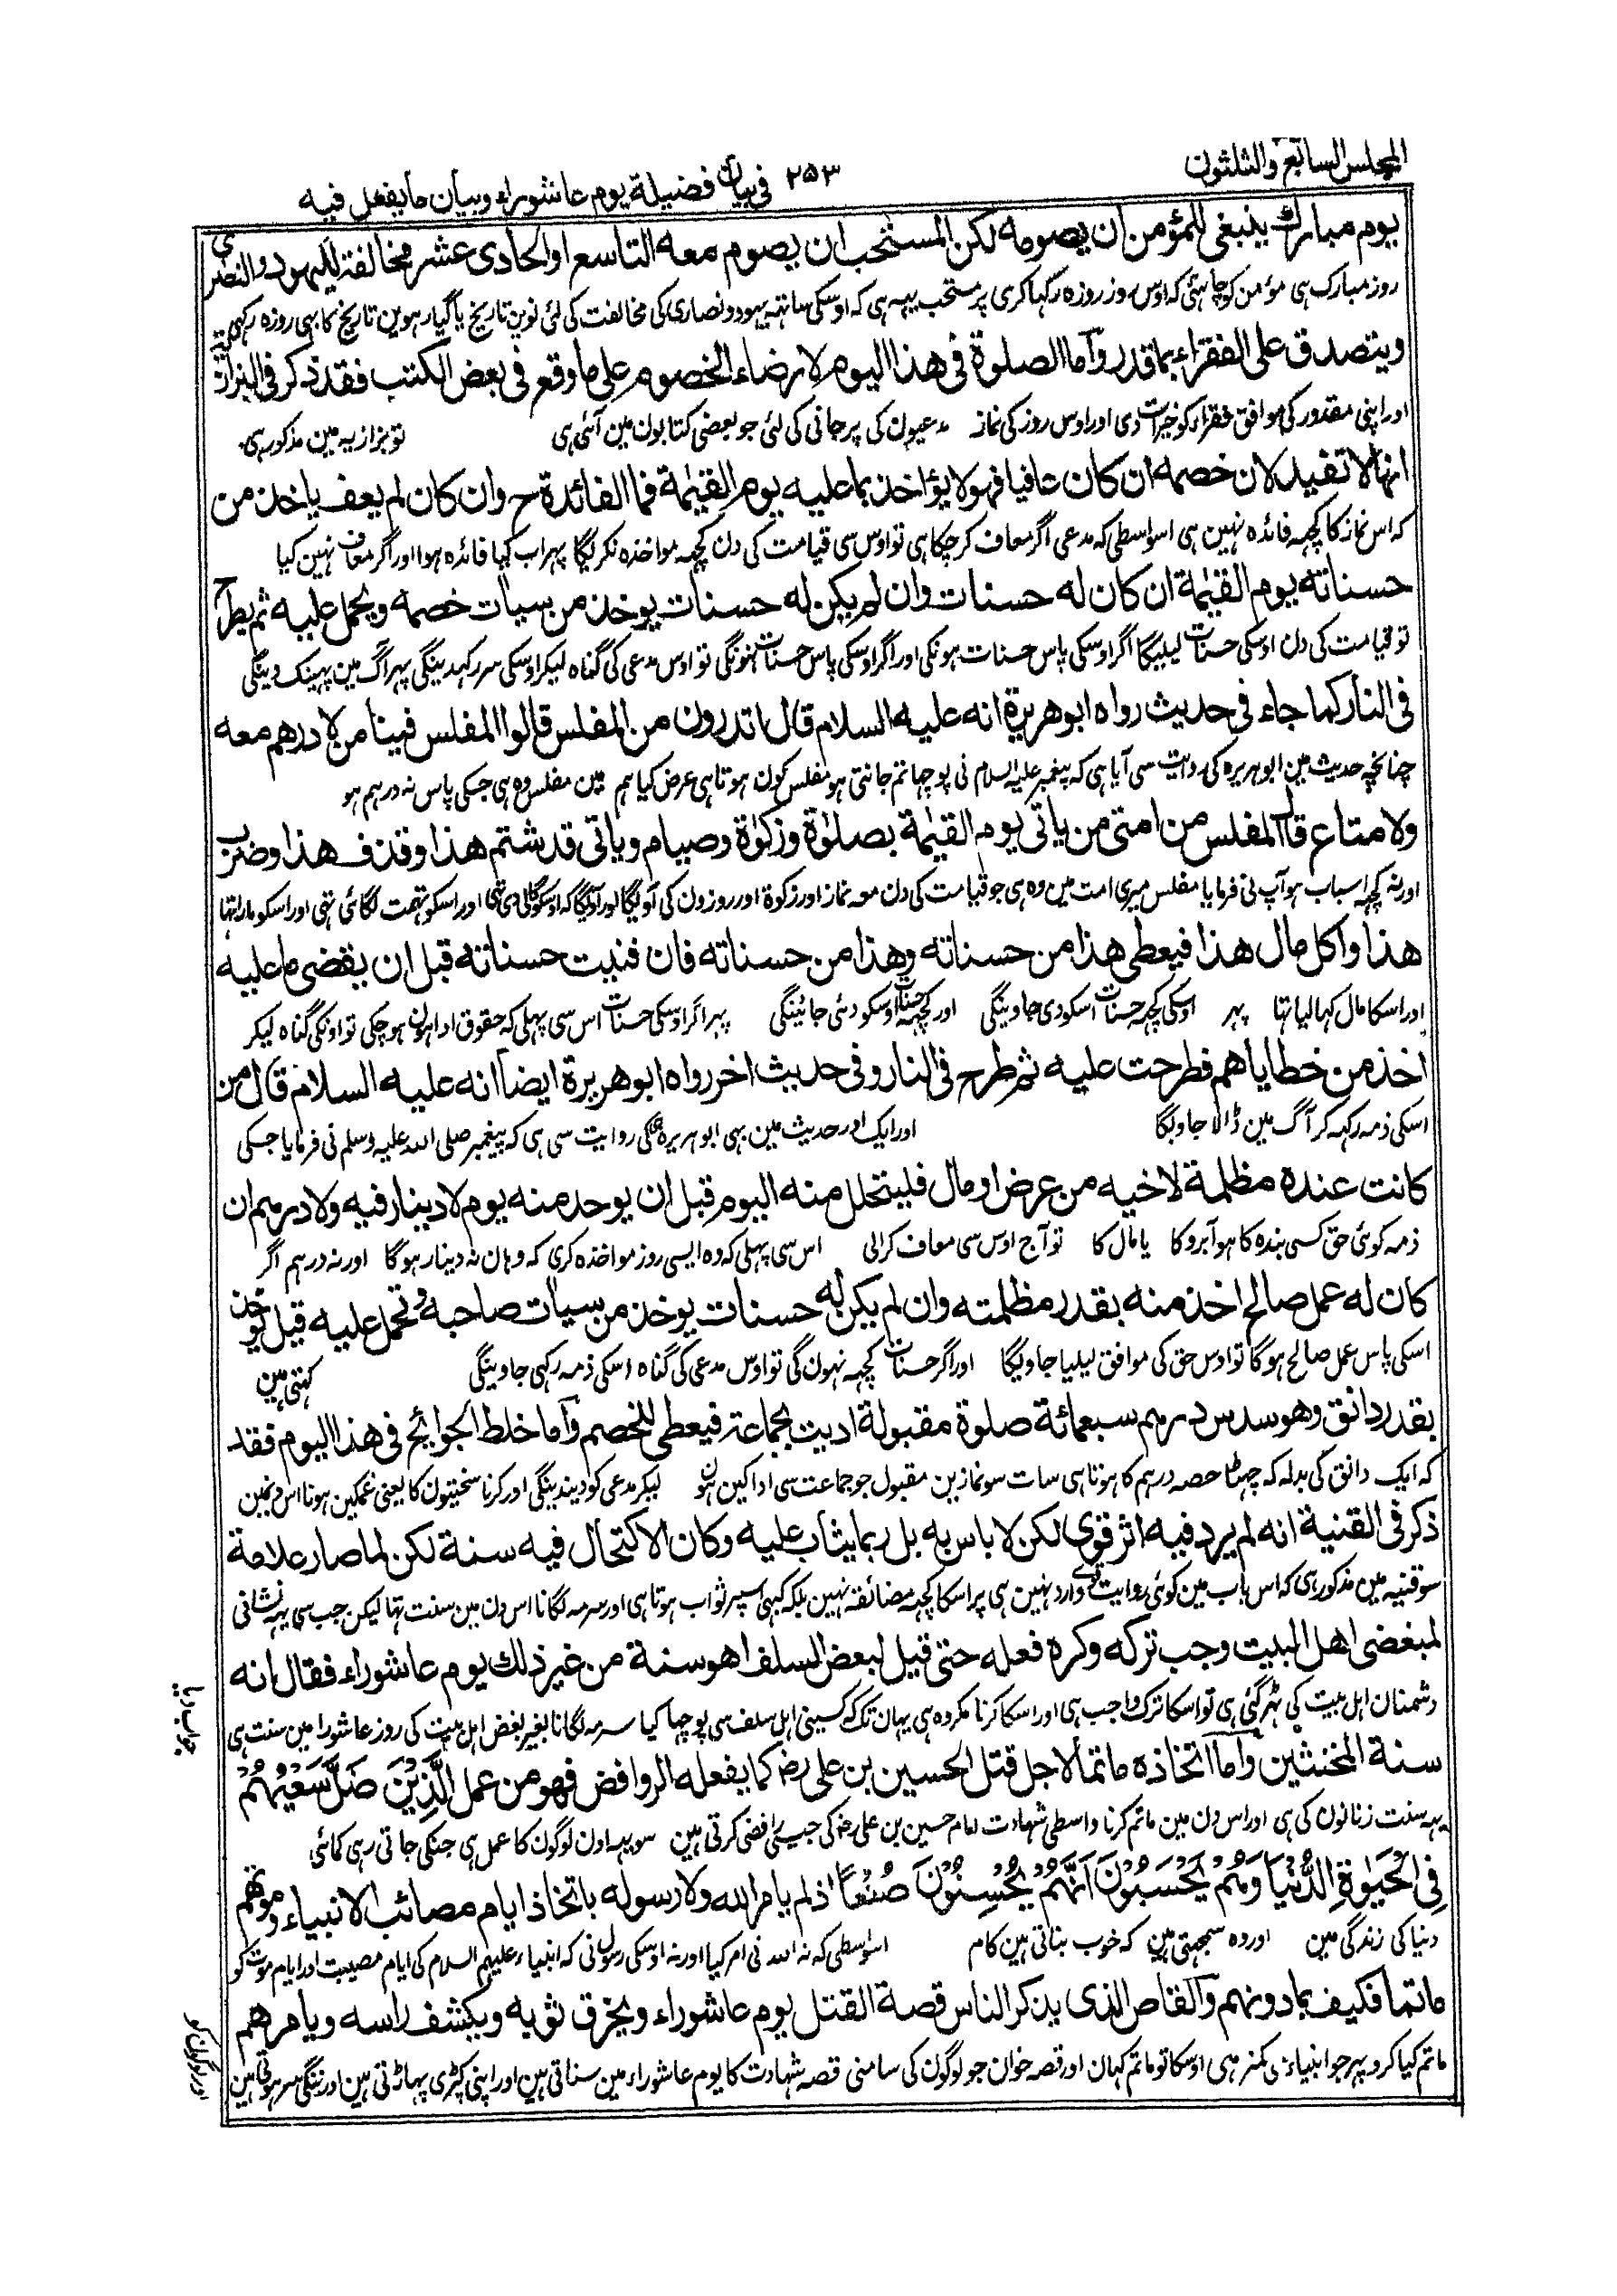 المجلس السابع والثلثون
٢٥٣
فى بيان فضيلة يوم عاشوراء وبيان ما يفعل فيه
يوم مبارك ينبغى للمؤمن ان يصومه لكن المستحب ان يصوم معه التاسع او الحادى عشر مخالفة لليهود والنصرى
روز مبارک ہی مؤمن کو چاہئی کہ اوس روز روزہ رکہا کری پر مستحب یہہ ہی کہ اوسکی ساتہہ یہود و نصاری کی مخالفت کی لئی نوین تاریخ یا گیارہوین تاریخ کا بہی روزہ رکہی
ويتصدق على الفقراء بما قدر واما الصلوة فى هذا اليوم لارضاء الخصوم على ما وقع فى بعض الكتب فقد ذكر فى البزازية
اور اپنی مقدور کی موافق فقراء کو خیرات دی اور اوس روز کی نماز مدعیون کی پرجانی کی لئی جو بعضی کتابون مین آئی ہی تو بزازیہ مین مذکور ہی
انها لا تفيد لان خصمه ان كان عافيا فهو لا يؤاخذ بما عليه يوم القيمة فما الفائدة ح وان كان لم يعف ياخذ من
کہ اس نماز کا کچہہ فائدہ نہین ہی اسواسطی کہ مدعی اگر معاف کر چکا ہی تو اوس سی قیامت کی دن کچہہ مواخذہ نکریگا پہر اب کیا فائدہ ہوا اور اگر معاف نہین کیا
حسناته يوم القيمة ان كان له حسنات وان لم يكن له حسنات يوخذ من سيات خصمه ويحمل عليه ثم يطرح
تو قیامت کی دن اوسکی حسنات لیلیگا اگر اوسکی پاس حسنات ہونگی اور اگر اوسکی پاس حسنات نہونگی تو اوس مدعی کی گناہ لیکر اوسکی سر رکہدینگی پہر آگ مین پہینک دینگی
فى النار كما جاء فى حديث رواه ابو هريرة انه عليه السلام قال اتدرون من المفلس قالوا المفلس فينا من لا درهم معه
چنانچہ حدیث مین ابو ہریرہ کی روایت سی آیا ہی کہ پیغمبر علیہ السلام نی پوچہا تم جانتی ہو مفلس کون ہوتا ہی عرض کیا ہم مین مفلس وہ ہی جسکی پاس نہ درہم ہو
ولا متاع قال المفلس من امتى من ياتى يوم القيمة بصلوة وزكوة وصيام وياتى قد شتم هذا وقذف هذا وضرب
اور نہ کچہہ اسباب ہو آپ نی فرمایا مفلس میری امت مین وہ ہی جو قیامت کی دن معہ نماز اور زکوۃ اور روزون کی آویگا اور آویگا کہ اوسکو گالی دی تہی اور اسکو تہمت لگائی تہی اور اسکو مارا تہا
هذا واكل مال هذا فيعطى هذا من حسناته وهذا من حسناته فان فنيت حسناته قبل ان يقضى ما عليه
اور اسکا مال کہا لیا تہا پہر اوسکی کچہہ حسنات اسکو دی جاوینگی اور کچہہ حسنات اوسکو دئی جائینگی پہر اگر اوسکی حسنات اس سی پہلی کہ حقوق ادا ہون ہو چکی تو اونکی گناہ لیکر
اخذ من خطاياهم فطرحت عليه ثم طرح فى النار وفى حديث اخر رواه ابو هريرة ايضا انه عليه السلام قال من
اسکی ذمہ رکہہ کر آگ مین ڈالا جاویگا اور ایک اور حدیث مین بہی ابو ہریرہ کی روایت سی ہی کہ پیغمبر صلی اللہ علیہ وسلم نی فرمایا جسکی
كانت عنده مظلمة لاخيه من عرض او مال فليتحلل منه اليوم قبل ان يوخذ منه يوم لا دينار فيه ولا درهم ان
ذمہ کوئی حق کسی بندہ کا ہو آبرو کا یا مال کا تو آج اوس سی معاف کرالی اس سی پہلی کہ وہ ایسی روز مواخذہ کری کہ وہان نہ دینار ہوگا اور نہ درہم اگر
كان له عمل صالح اخذ منه بقدر مظلمته وان لم يكن له حسنات يوخذ من سيات صاحبه وتحمل عليه قيل يوخذ
اسکی پاس عمل صالح ہوگا تو اوس حق کی موافق لیلیا جاویگا اور اگر حسنات کچہہ نہون گی تو اوس مدعی کی گناہ اسکی ذمہ رکہی جاوینگی کہتی ہین
بقدر دانق وهو سدس درهم سبعمائة صلوة مقبولة اديت بجماعة فيعطى للخصم واما خلط الحوائج فى هذا اليوم فقد
کہ ایک دانق کی بدلہ کہ چہٹا حصہ درہم کا ہوتا ہی سات سو نمازین مقبول جو جماعت سی ادا کین ہون لیکر مدعی کو دیدینگی اور کرنا سختیون کا یعنی غمکین ہونا اس دنمین
ذكر فى القنية انه لم يرد فيه اثر قوى لكن لا باس به بل ربما يثاب عليه وكان الاكتحال فيه سنة لكن لما صار علامة
سو قنیہ مین مذکور ہی کہ اس باب مین کوئی روایت قوی وارد نہین ہی پر اسکا کچہہ مضائقہ نہین بلکہ کبہی اسپر ثواب ہوتا ہی اور سرمہ لگانا اس دن مین سنت تہا لیکن جب سی یہہ نشانی
لمبغضى اهل البيت وجب تركه وكره فعله حتى قيل لبعض السلف اهو سنة من غير ذلك يوم عاشوراء فقال انه
دشمنان اہل بیت کی ٹہر گئی ہی تو اسکا ترک واجب ہی اور اسکا کرنا مکروہ ہی یہان تک کہ کسینی اہل سلف سی پوچہا کیا سرمہ لگانا بغیر بغض اہل بیت کی روز عاشورا مین سنت ہی
جواب دیا
سنة المخنثين واما اتخاذه ماتما لاجل قتل الحسين بن على رضـ كما يفعله الروافض فهو من عمل الَّذِيْنَ ضَلَّ سَعْيُهُمْ
یہہ سنت زنانون کی ہی اور اس دن مین ماتم کرنا واسطی شہادت امام حسین بن علی رضـ کی جیسی رافضی کرتی ہین سو یہہ اون لوگون کا عمل ہی جنکی جاتی رہی کمائی
فِى الْحَيٰوةِ الدُّنْيَا وَهُمْ يَحْسَبُوْنَ اَنَّهُمْ يُحْسِنُوْنَ صُنْعًا اذ لم يامر الله ولا رسوله باتخاذ ايام مصائب الانبياء وموتهم
دنیا کی زندگی مین اور وہ سمجہتی ہین کہ خوب بناتی ہین کام اسواسطی کہ نہ اللہ نی امر کیا اور نہ اوسکی رسول نی کہ انبیاء علیہم السلام کی ایام مصیبت اور ایام موت کو
ماتما فكيف بما دونهم والقاص الذى يذكر الناس قصة القتل يوم عاشوراء ويخرق ثوبه ويكشف راسه ويامرهم
ماتم کیا کرو پہر جو انبیاء سی کمتر ہی اوسکا تو ماتم کہان اور قصہ خوان جو لوگون کی سامنی قصہ شہادت کا یوم عاشوراء مین سناتی ہین اور اپنی کپڑی پہاڑتی ہین اور ننگی سر ہوتی ہین
اور لوگون کو